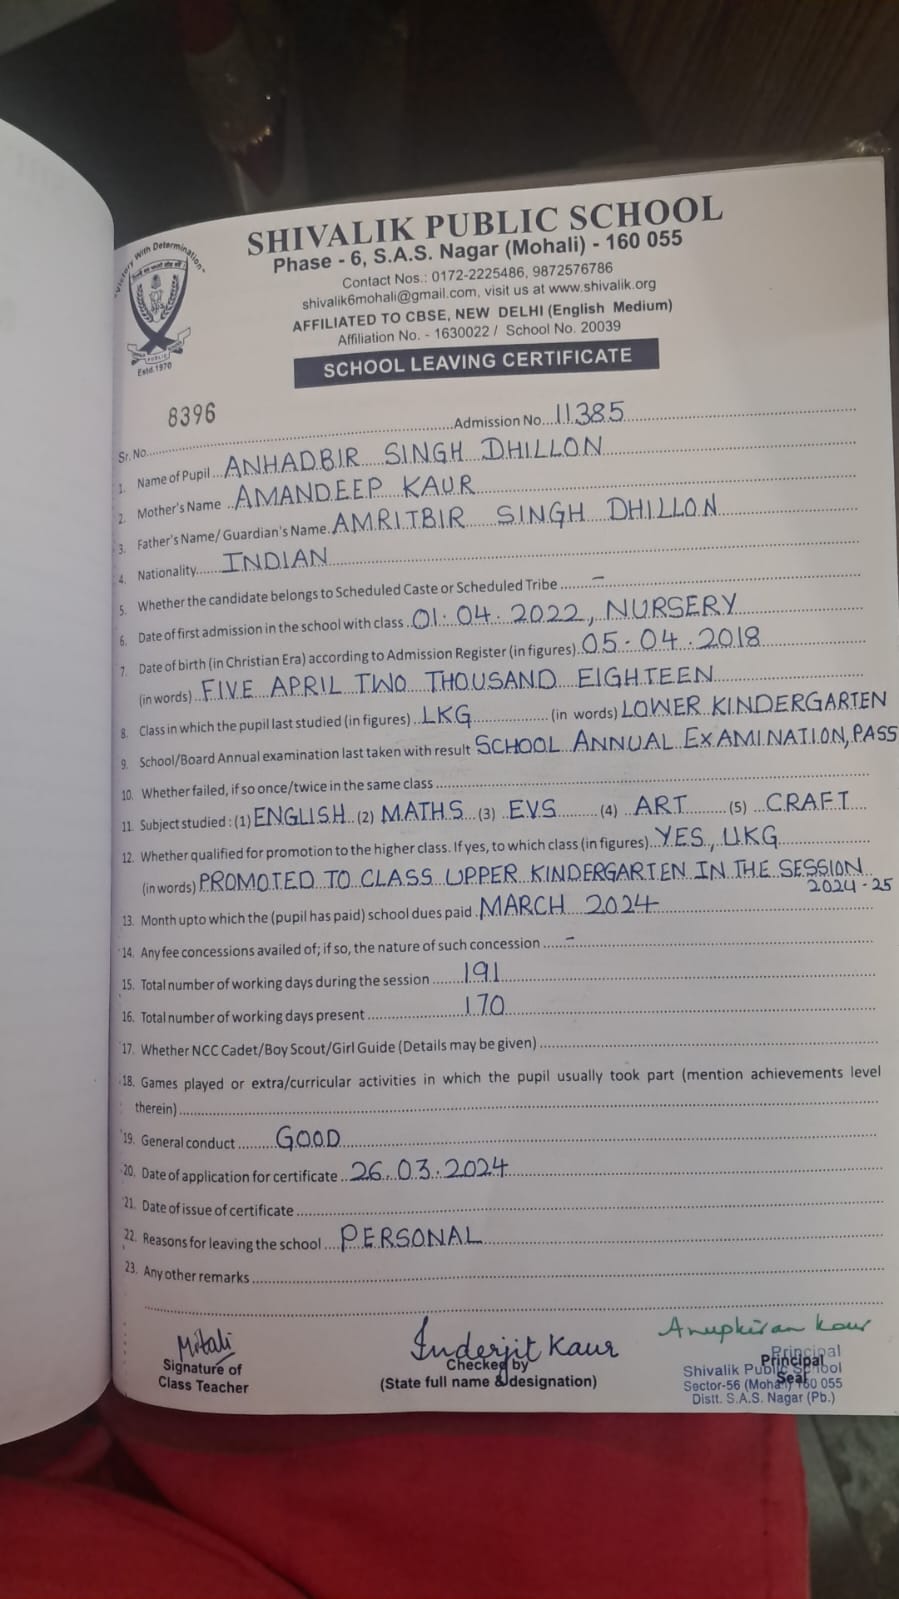 "Victory With Determination"
PUBLIC
Estd.1970
SHIVALIK PUBLIC SCHOOL
Phase - 6, S.A.S. Nagar (Mohali) - 160 055
Contact Nos.: 0172-2225486, 9872576786
shivalik6mohali@gmail.com, visit us at www.shivalik.org
AFFILIATED TO CBSE, NEW DELHI (English Medium)
Affiliation No. - 1630022 / School No. 20039
SCHOOL LEAVING CERTIFICATE
Sr. No. 8396 Admission No. 11385
1. Name of Pupil ANHADBIR SINGH DHILLON
2. Mother's Name AMANDEEP KAUR
3. Father's Name/ Guardian's Name AMRITBIR SINGH DHILLON
4. Nationality INDIAN
5. Whether the candidate belongs to Scheduled Caste or Scheduled Tribe –
6. Date of first admission in the school with class 01.04.2022, NURSERY
7. Date of birth (in Christian Era) according to Admission Register (in figures) 05-04.2018
(in words) FIVE APRIL TWO THOUSAND EIGHTEEN
8. Class in which the pupil last studied (in figures) LKG (in words) LOWER KINDERGARTEN
9. School/Board Annual examination last taken with result SCHOOL ANNUAL EXAMINATION, PASS
10. Whether failed, if so once/twice in the same class
11. Subject studied : (1) ENGLISH (2) MATHS (3) EVS (4) ART (5) CRAFT
12. Whether qualified for promotion to the higher class. If yes, to which class (in figures) YES, UKG
(in words) PROMOTED TO CLASS UPPER KINDERGARTEN IN THE SESSION
2024-25
13. Month upto which the (pupil has paid) school dues paid MARCH 2024
14. Any fee concessions availed of; if so, the nature of such concession –
15. Total number of working days during the session 191
16. Total number of working days present 170
17. Whether NCC Cadet/Boy Scout/Girl Guide (Details may be given)
18. Games played or extra/curricular activities in which the pupil usually took part (mention achievements level
therein)
19. General conduct GOOD
20. Date of application for certificate 26.03.2024
21. Date of issue of certificate
22. Reasons for leaving the school PERSONAL
23. Any other remarks
Mitali Inderjit Kaur Anupkiran Kaur
Signature of
Class Teacher
Checked by
(State full name & designation)
Principal
Seal
Principal
Shivalik Public School
Sector-56 (Mohali) 160 055
Distt. S.A.S. Nagar (Pb.)